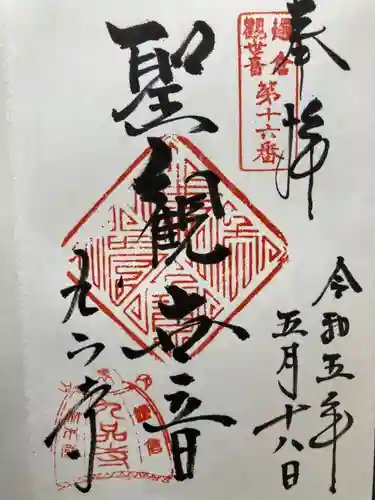 奉拝
鎌倉
観世音
第十六番
令和五年
五月十八日
聖観世音
九品寺
鎌倉
九品寺